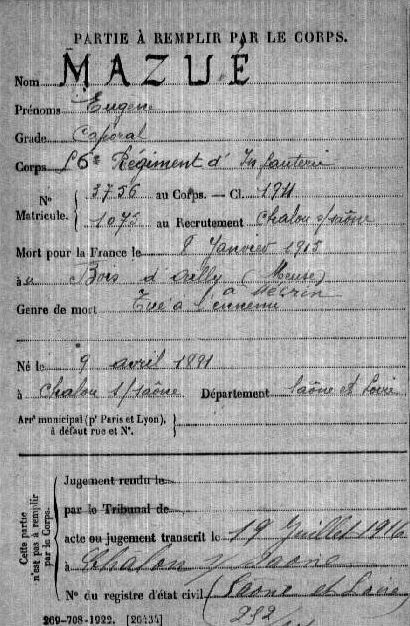 PARTIE À REMPLIR PAR LE CORPS.
Nom MAZUÉ
Prénoms Eugène
Grade Caporal
Corps 56e Régiment d'Infanterie
No Matricule. { 3756 au Corps. — Cl. 1911
1075 au Recrutement Chalon s/saône
Mort pour la France le 8 Janvier 1915
à au Bois d'Ailly (Meuse)
à Mécrin
Genre de mort Tué à l'ennemi
Né le 9 avril 1891
à Chalon s/saône Département Saône et Loire
Arrt municipal (pr Paris et Lyon), à défaut rue et No.
Cette partie n'est pas à remplir par le Corps.
Jugement rendu le
par le Tribunal de
acte ou jugement transcrit le 19 Juillet 1916
à Chalon s/ Saone
No du registre d'état civil (Saone et Loire)
232
269-708-1922. [26434]